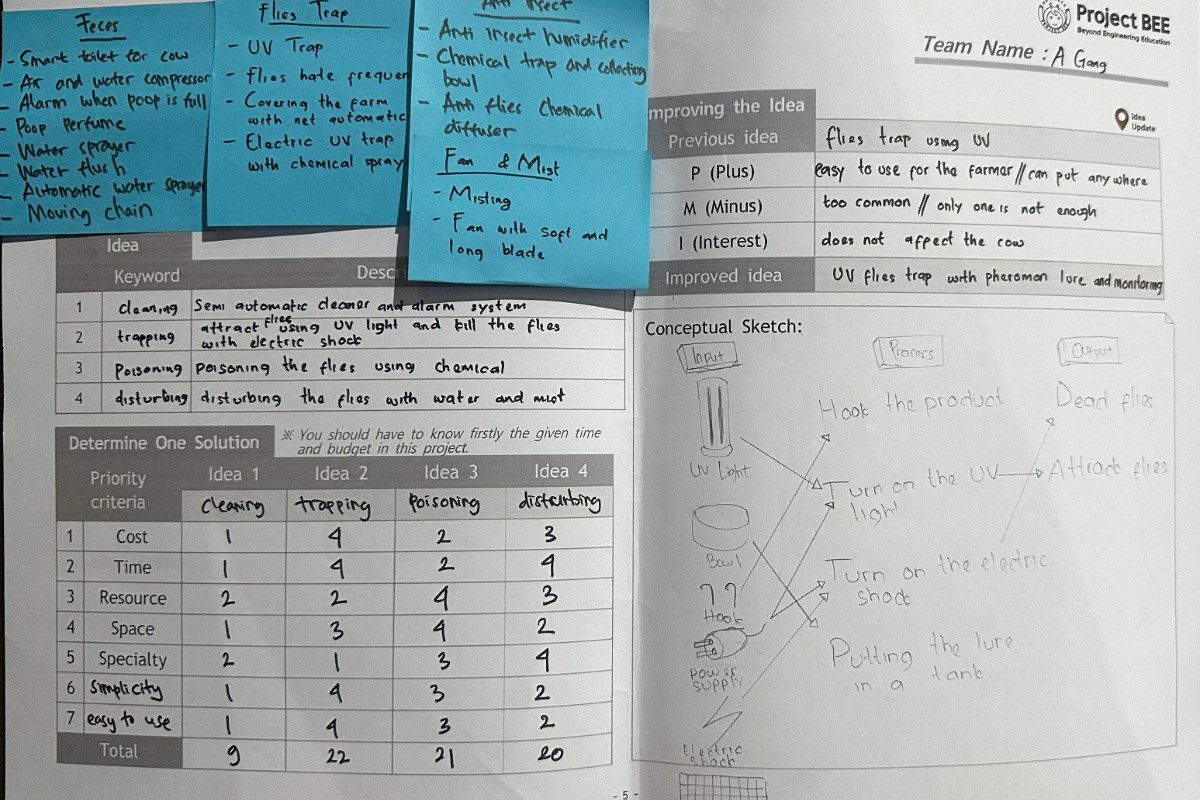 Feces
- Smart toilet for cow
- Air and water compressor
- Alarm when poop is full
- Poop Perfume
- Water sprayer
- Water flush
- Automatic water sprayer
- Moving chain
Flies Trap
- UV Trap
- Flies hate frequen
- Covering the farm
with net automatic
- Electric UV trap
with chemical spray
Anti insect
- Anti insect humidifier
- Chemical trap and collecting
bowl
- Anti flies chemical
diffuser
Fan & Mist
- Misting
- Fan with soft and
long blade
Idea
Keyword Descr
1 cleaning Semi automatic cleaner and alarm system
2 trapping attract flies using UV light and kill the flies
with electric shock
3 Poisoning poisoning the flies using chemical
4 disturbing disturbing the flies with water and mist
Determine One Solution ※ You should have to know firstly the given time
and budget in this project.
Priority criteria Idea 1 Idea 2 Idea 3 Idea 4
cleaning trapping poisoning disturbing
1 Cost 1 4 2 3
2 Time 1 4 2 4
3 Resource 2 2 4 3
4 Space 1 3 4 2
5 Specialty 2 1 3 4
6 simplicity 1 4 3 2
7 easy to use 1 4 3 2
Total 9 22 21 20
- 5 -
Project BEE
Beyond Engineering Education
Team Name : A Gang
mproving the Idea
Idea
Update
Previous idea flies trap using UV
P (Plus) easy to use for the farmer // can put any where
M (Minus) too common // only one is not enough
I (Interest) does not affect the cow
Improved idea UV flies trap with pheromon lure and monitoring
Conceptual Sketch:
Input Process Output
UV Light
Bowl
Hook
power
supply
Electric
shock
Hook the product
Turn on the UV
light
Turn on the electric
shock
Putting the lure
in a tank
Dead flies
Attrack flies